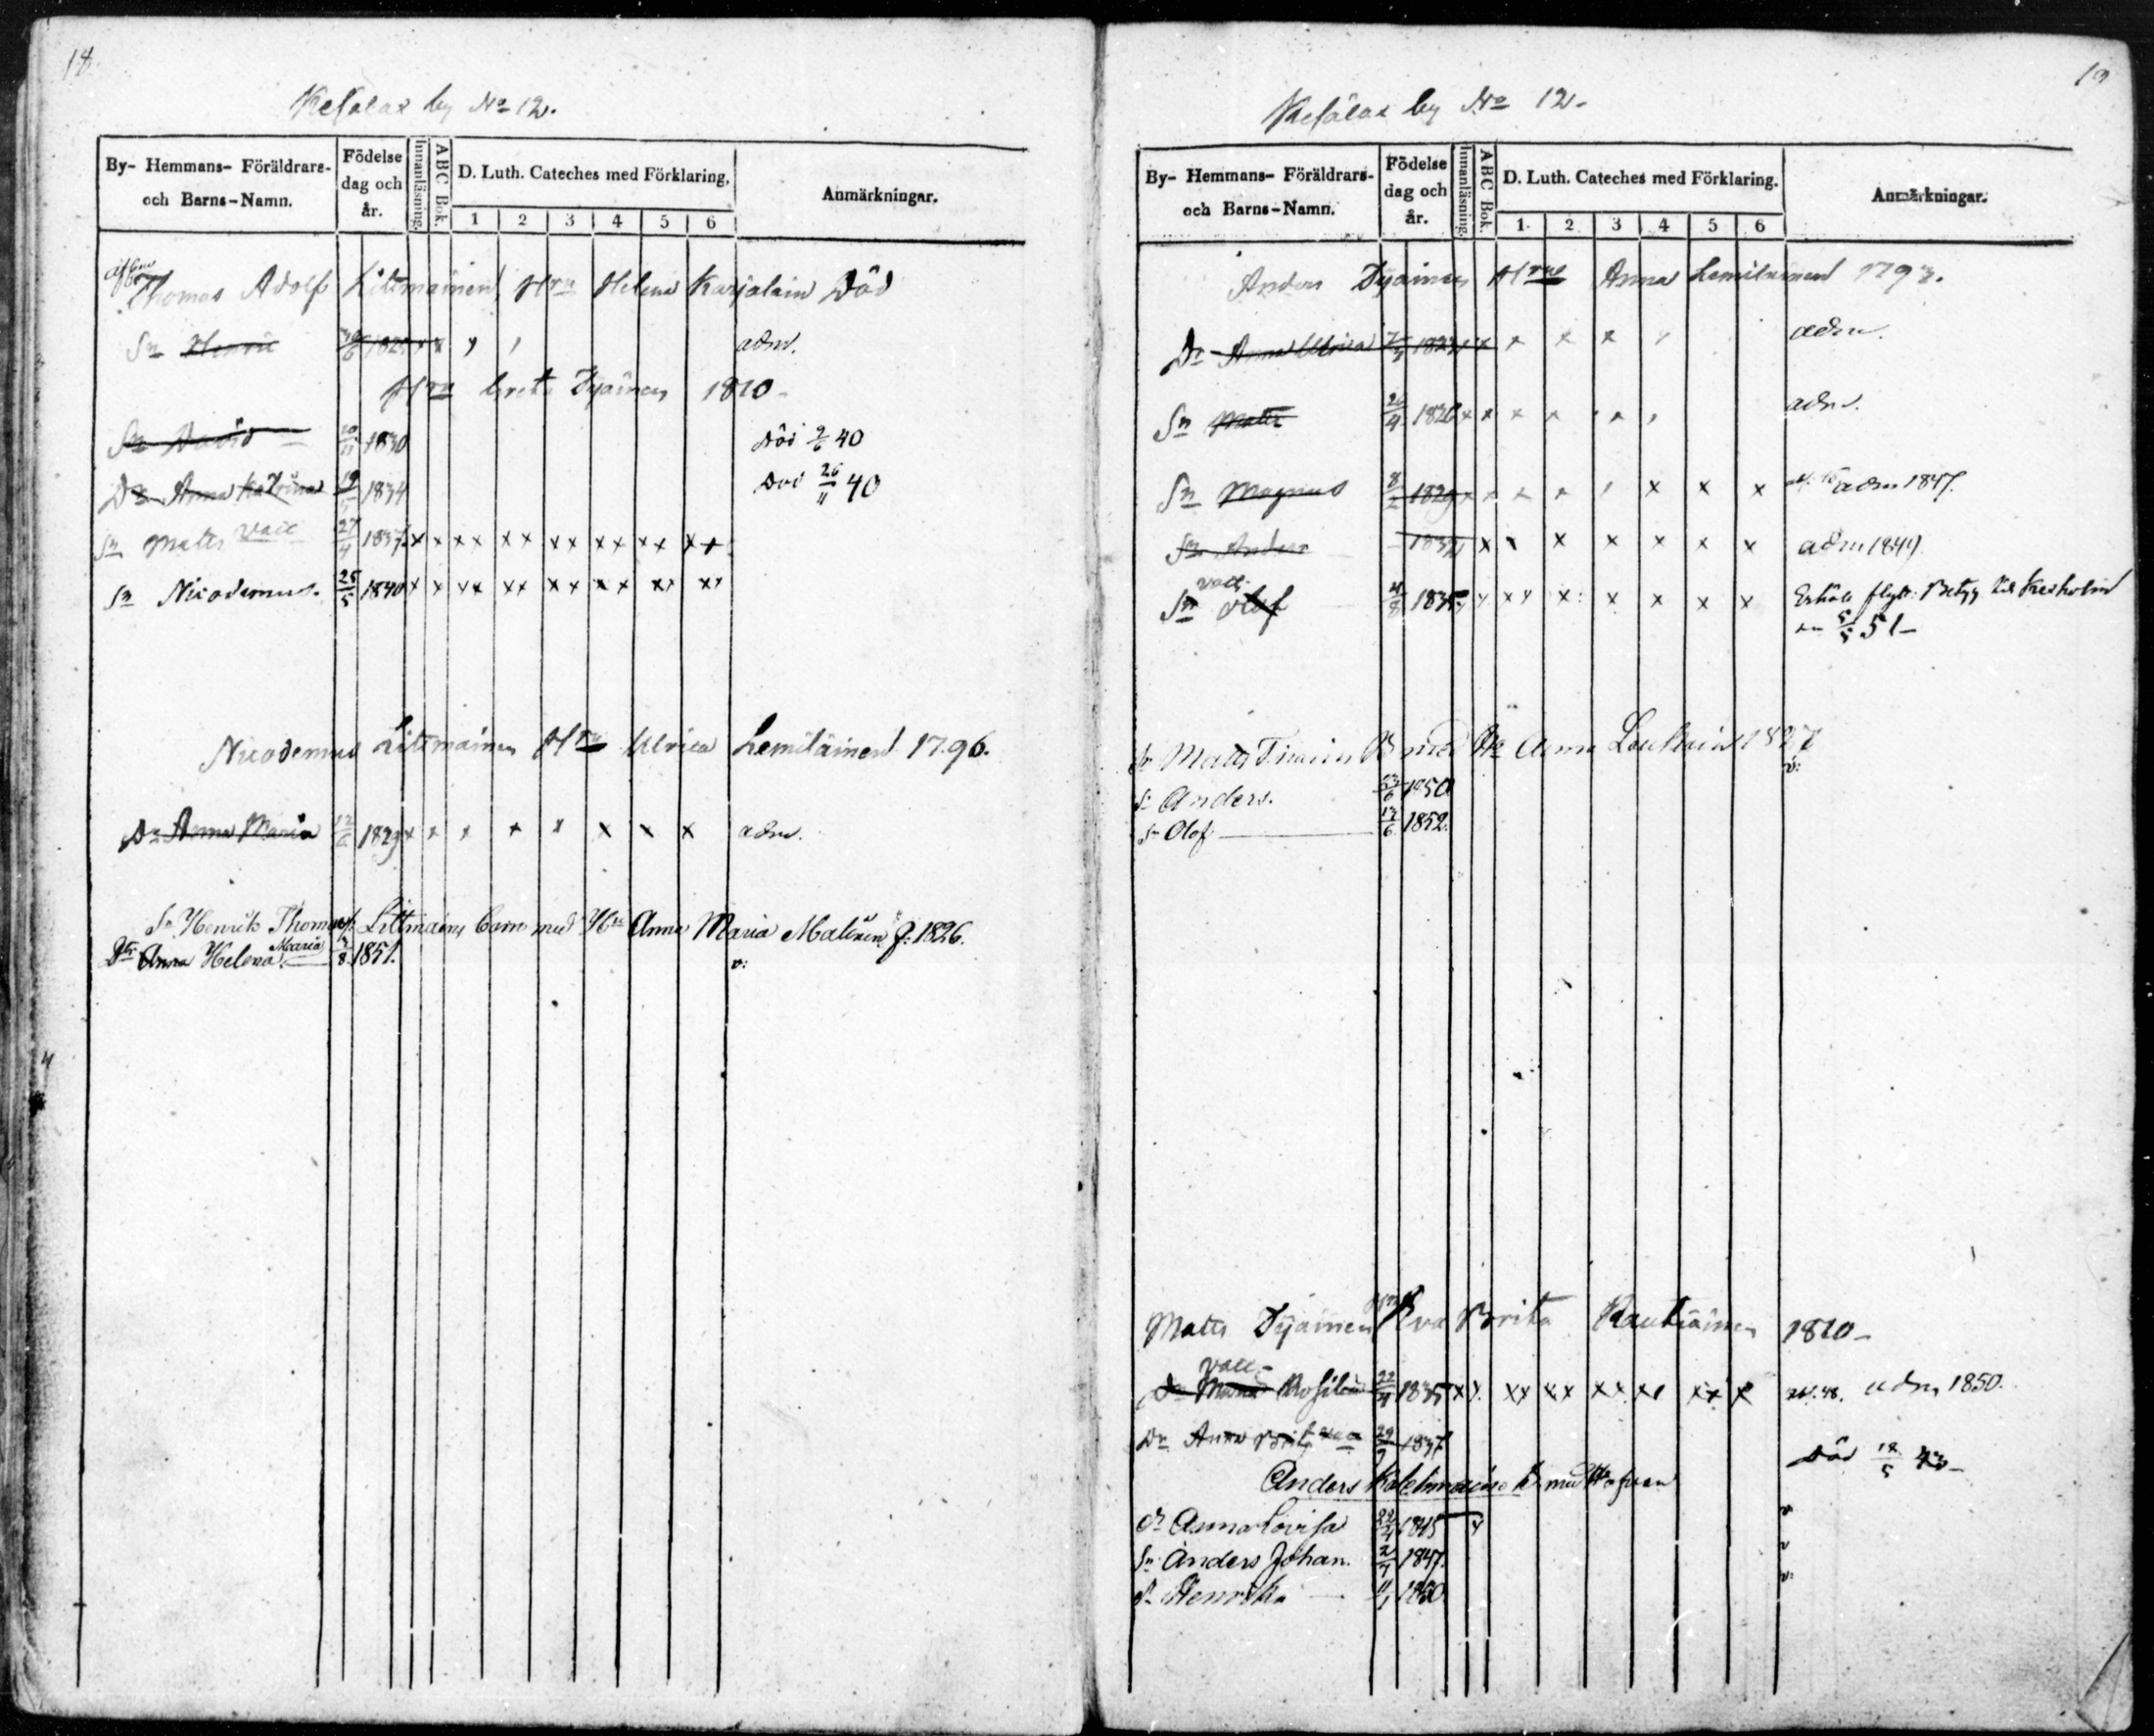 14.
Kesälax by No 12.
By- Hemmans- Föräldrars- och Barns-Namn.
Födelse dag och år.
Innanläsning.
ABC Bok.
D. Luth. Cateches med Förklaring.
1 2 3 4 5 6
Anmärkningar.
Thomas Adolf Littmainen Hru Helena Karjalain Död
Sn Henric 1825 x x adm.
Hru Greta Tyainen 1810-
Sn David 1830 död 9/6 40
Dr Anna Katrina 1834 död 26/11 40
Sn Matts vacc 27/4 1837 x x xx xx xx xx xx xx
Sn Nicodemus. 25/5 1840 x x xx xx xx xx xx xx
Nicodemus Littmainen Hru Ulrica Lemiläinen 1796.
Dr Anna Maria 12/6 1829 x x x x x x x x adm.
Sn Henrik Thomasp. Littmains barn med Hru Anna Maria Malinen f: 1826.
Dtr Anna Helena Maria 1851. v:
Kesälax by No 12.
By- Hemmans- Föräldrars- och Barns-Namn.
Födelse dag och år.
Innanläsning.
ABC Bok.
D. Luth. Cateches med Förklaring.
1. 2 3 4 5 6
Anmärkningar.
Anders Tyainen Hru Anna Lemiläinen 1793.
Dr Anna Ulrica 1823 x x x x x adm.
Sn Matts 26/4 1826 x x x x adm.
Sn Magnus 8/2 1829 x x x x x x x adm 1847.
Sn Anders 1832 x x x x x x x adm 1849.
vacc.
Sn Olof 4/8 1835 x xx x x x x x Erhöll flytt: Betyg till Kexholm
5/5 51-
Sn Matts Tiainen B med Hu Anna Loukain 1827
v:
Sn Anders. 1850
Sn Olof 17/6 1852.
Matts Tyainen Hru Eva Brita Rautiainen 1810-
vacc-
Dr Maria Rosilina 22/4 1835 xx xx xx xx xx xx x adm 1850.
Dr Anna Brita vacc 29/9 1837 död 18/5 43-
Anders Kolehmains B med Hafvan
Dr Anna Lovisa 22/4 1845 v
Sn Anders Johan. 2/7 1847. v
Dr Henrika 11/1 1850 v: